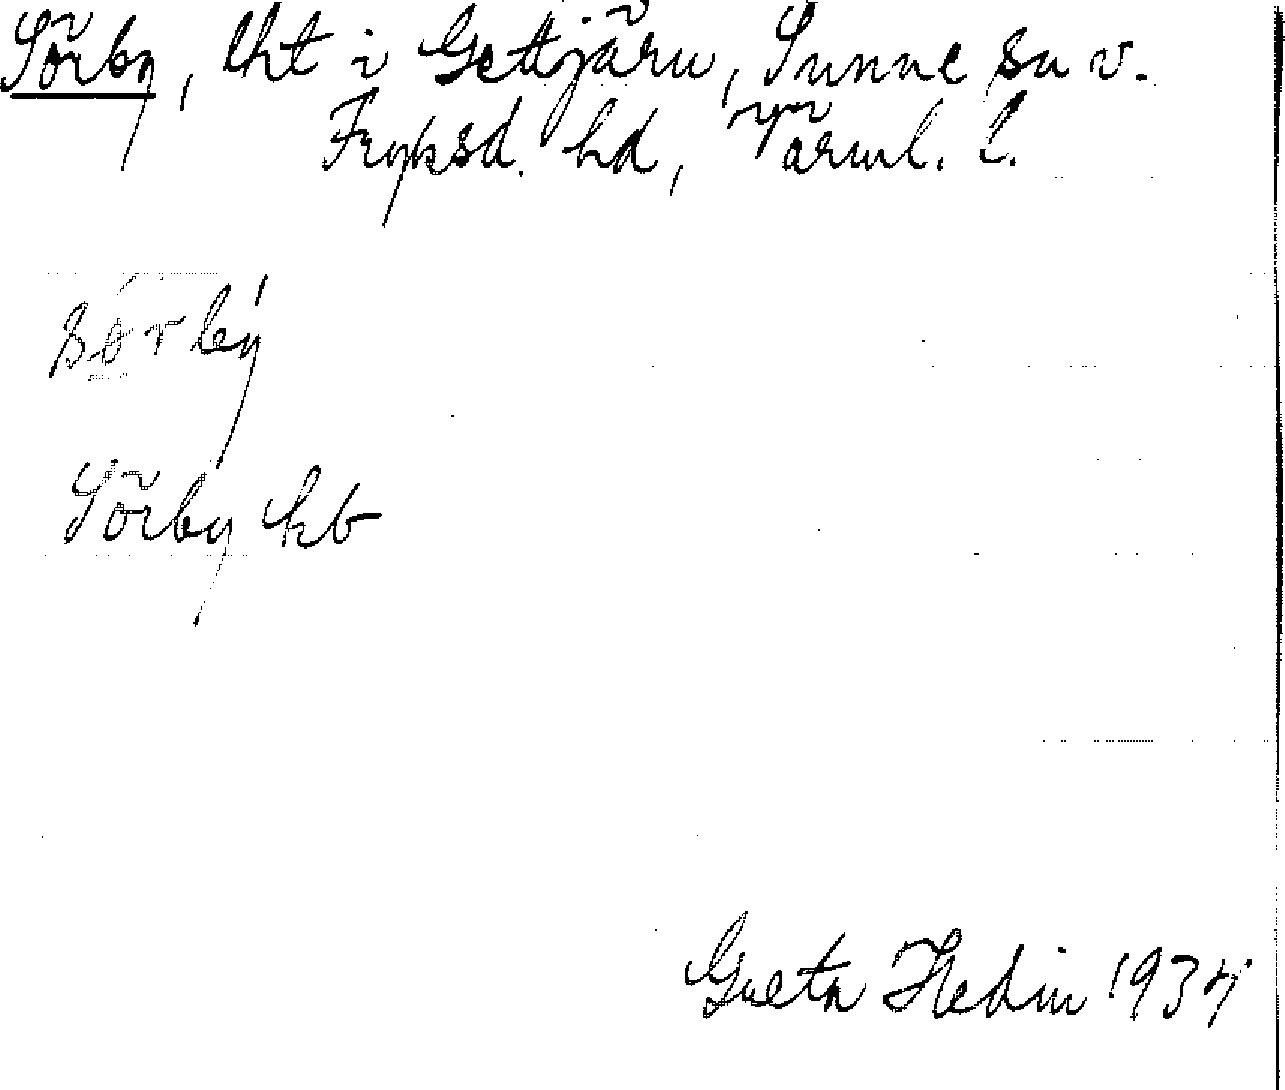 Sörby, lht i Gettjärn, Sunne sn v.
Fryksd. hd, Värml. l.
Sörby kb
Greta Hedin 1934